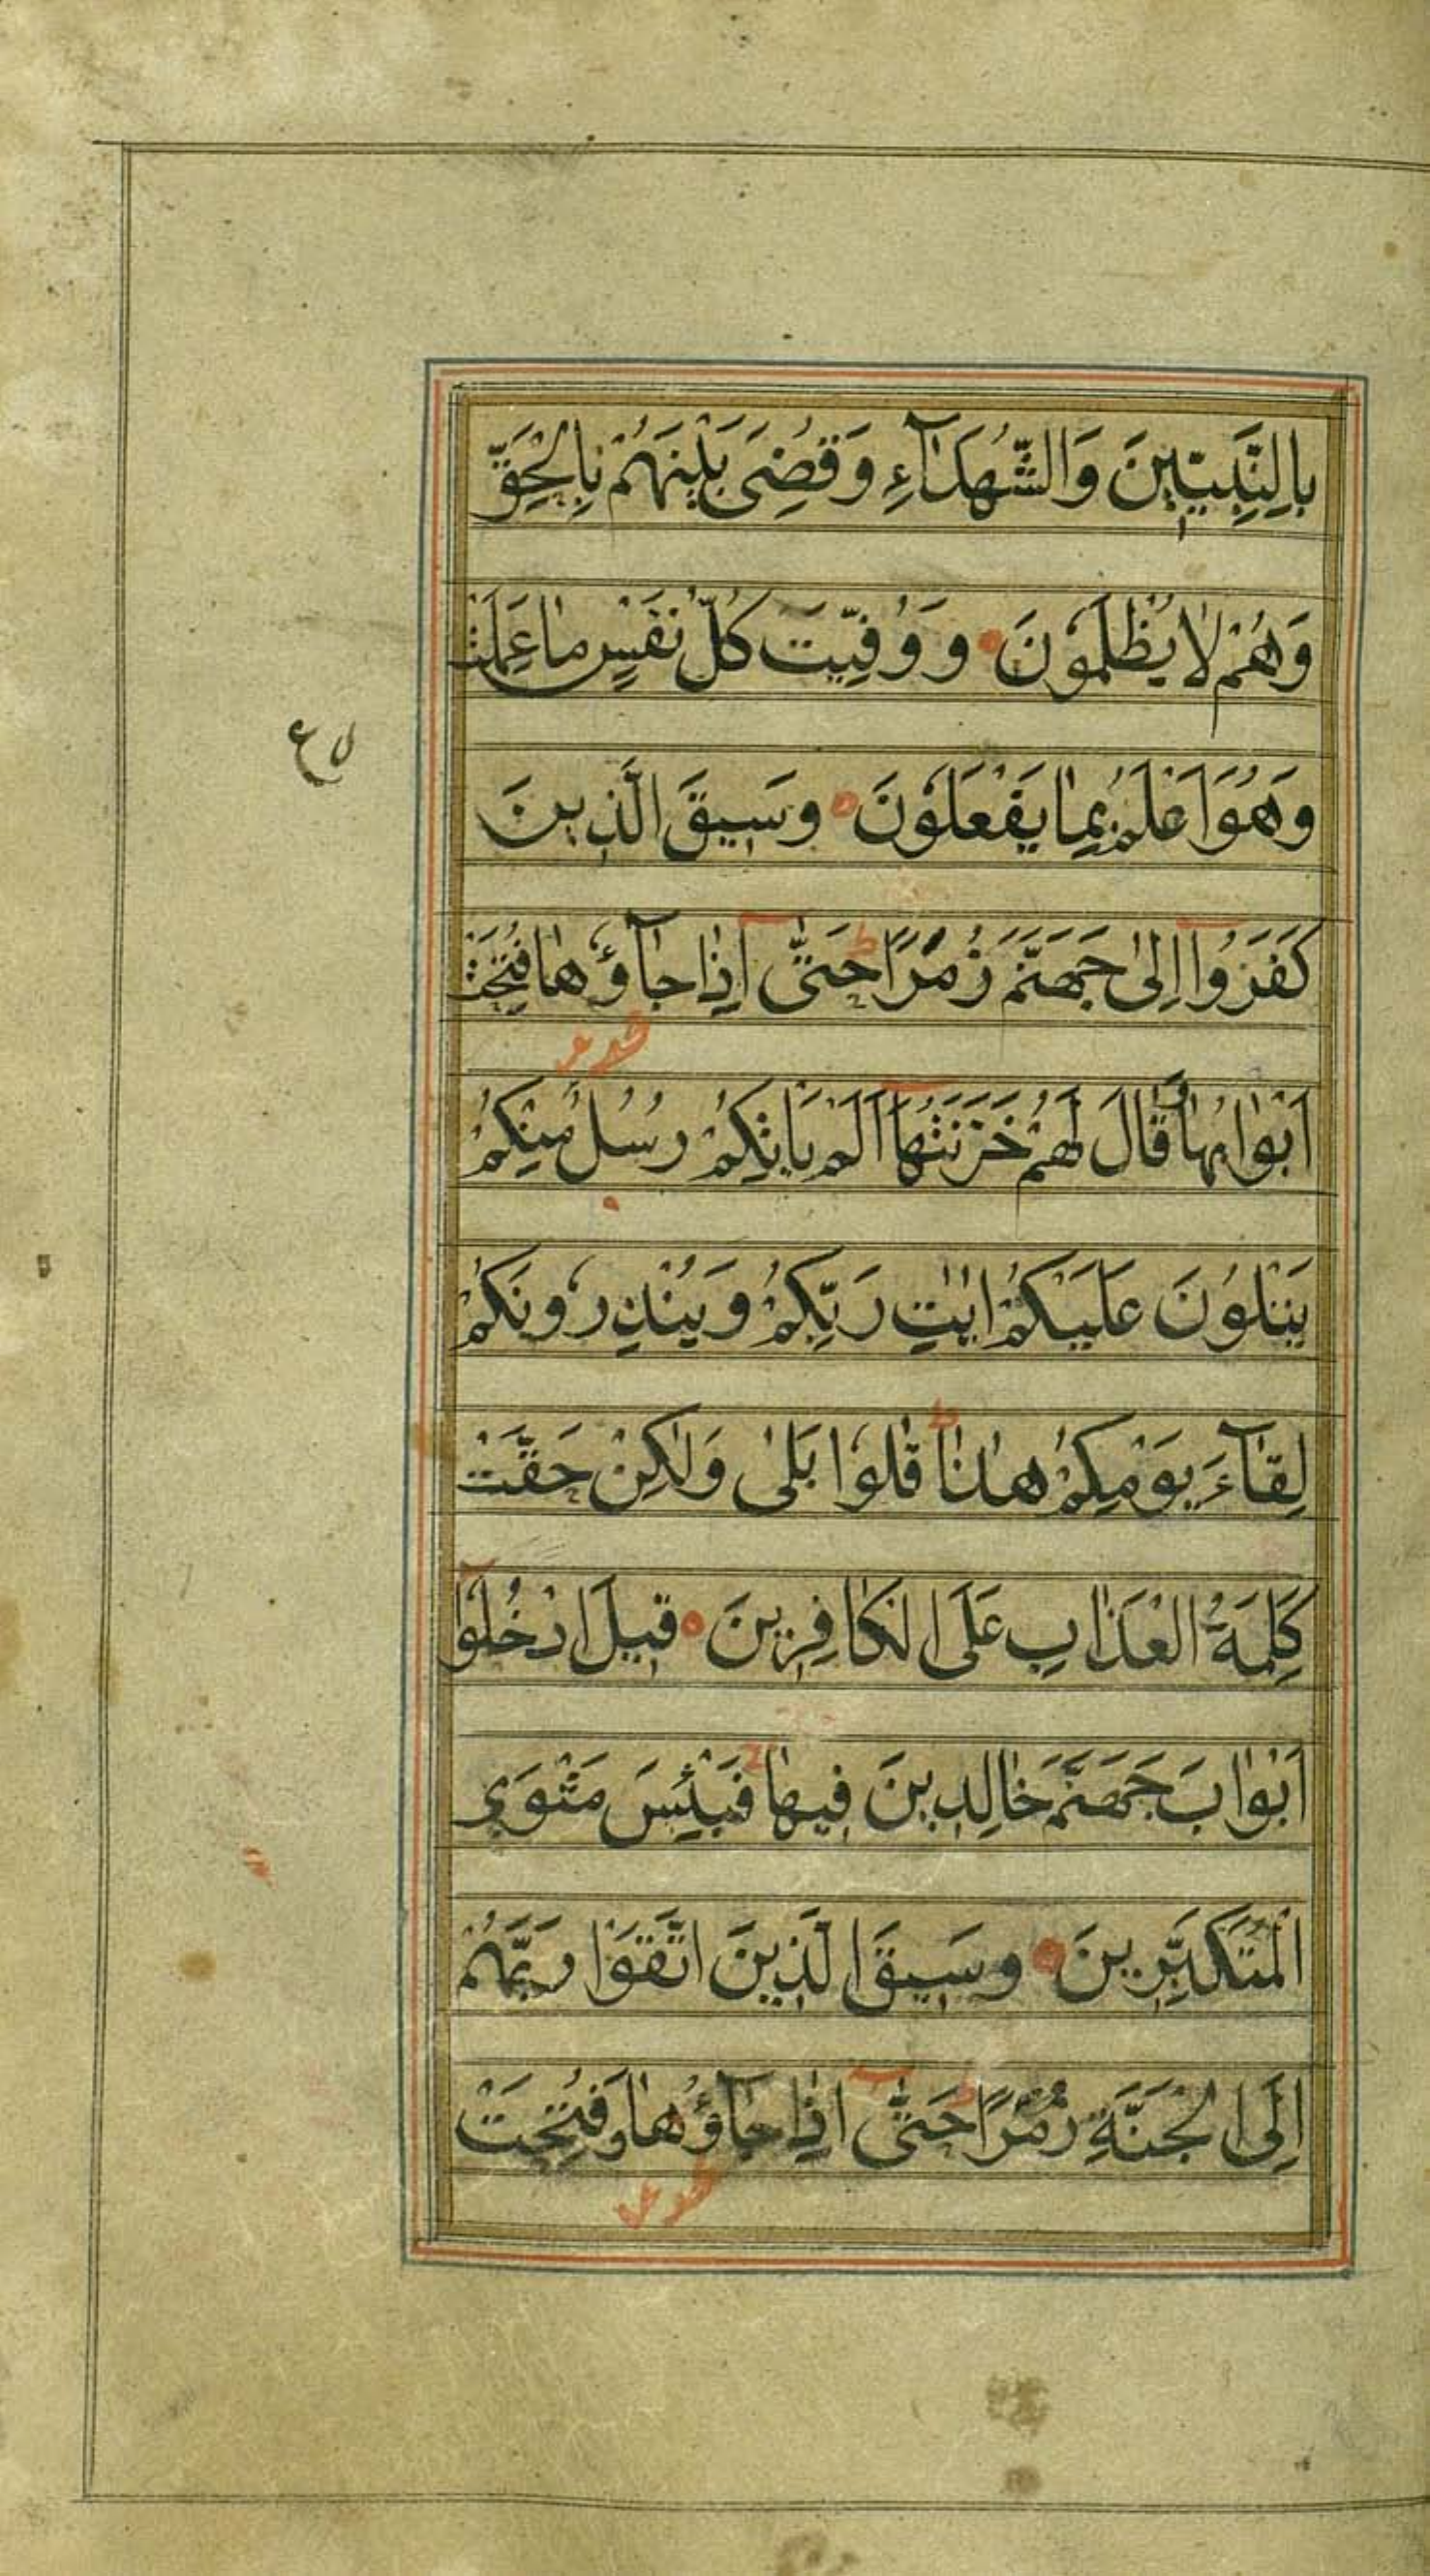 بِالنَّبِيّٖنَ وَالشُّهَدَآءِ وَقُضِيَ بَيْنَهُمْ بِالْحَقِّ
وَهُمْ لَا يُظْلَمُونَ وَوُفِّيَتْ كُلُّ نَفْسٍ مَا عَمِلَتْ
وَهُوَ اَعْلَمُ بِمَا يَفْعَلُونَ وَسٖيقَ الَّذٖينَ
ع
كَفَرُوٓا اِلٰى جَهَنَّمَ زُمَرًا ط حَتّٰىٓ اِذَا جَآؤُهَا فُتِحَتْ
اَبْوَابُهَا وَقَالَ لَهُمْ خَزَنَتُهَآ اَلَمْ يَاْتِكُمْ رُسُلٌ مِنْكُمْ
يَتْلُونَ عَلَيْكُمْ اٰيٰتِ رَبِّكُمْ وَيُنْذِرُونَكُمْ
لِقَآءَ يَوْمِكُمْ هٰذَا ط قَالُوا بَلٰى وَلٰكِنْ حَقَّتْ
كَلِمَةُ الْعَذَابِ عَلَى الْكَافِرٖينَ قٖيلَ ادْخُلُوٓا
اَبْوَابَ جَهَنَّمَ خَالِدٖينَ فٖيهَا ج فَبِئْسَ مَثْوَى
الْمُتَكَبِّرٖينَ وَسٖيقَ الَّذٖينَ اتَّقَوْا رَبَّهُمْ
اِلَى الْجَنَّةِ زُمَرًا ط حَتّٰىٓ اِذَا جَآؤُهَا وَفُتِحَتْ